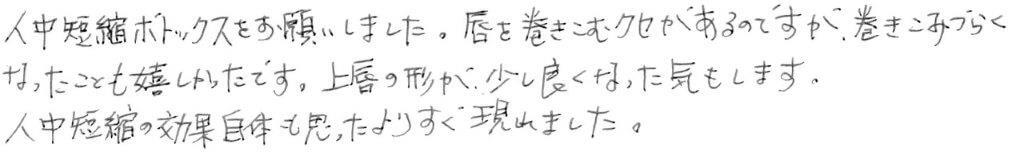 人中短縮ボトックスをお願いしました。唇を巻きこむクセがあるのですが、巻きこみづらく
なったことも嬉しかったです。上唇の形が、少し良くなった気もします。
人中短縮の効果自体も思ったよりすぐ現れました。